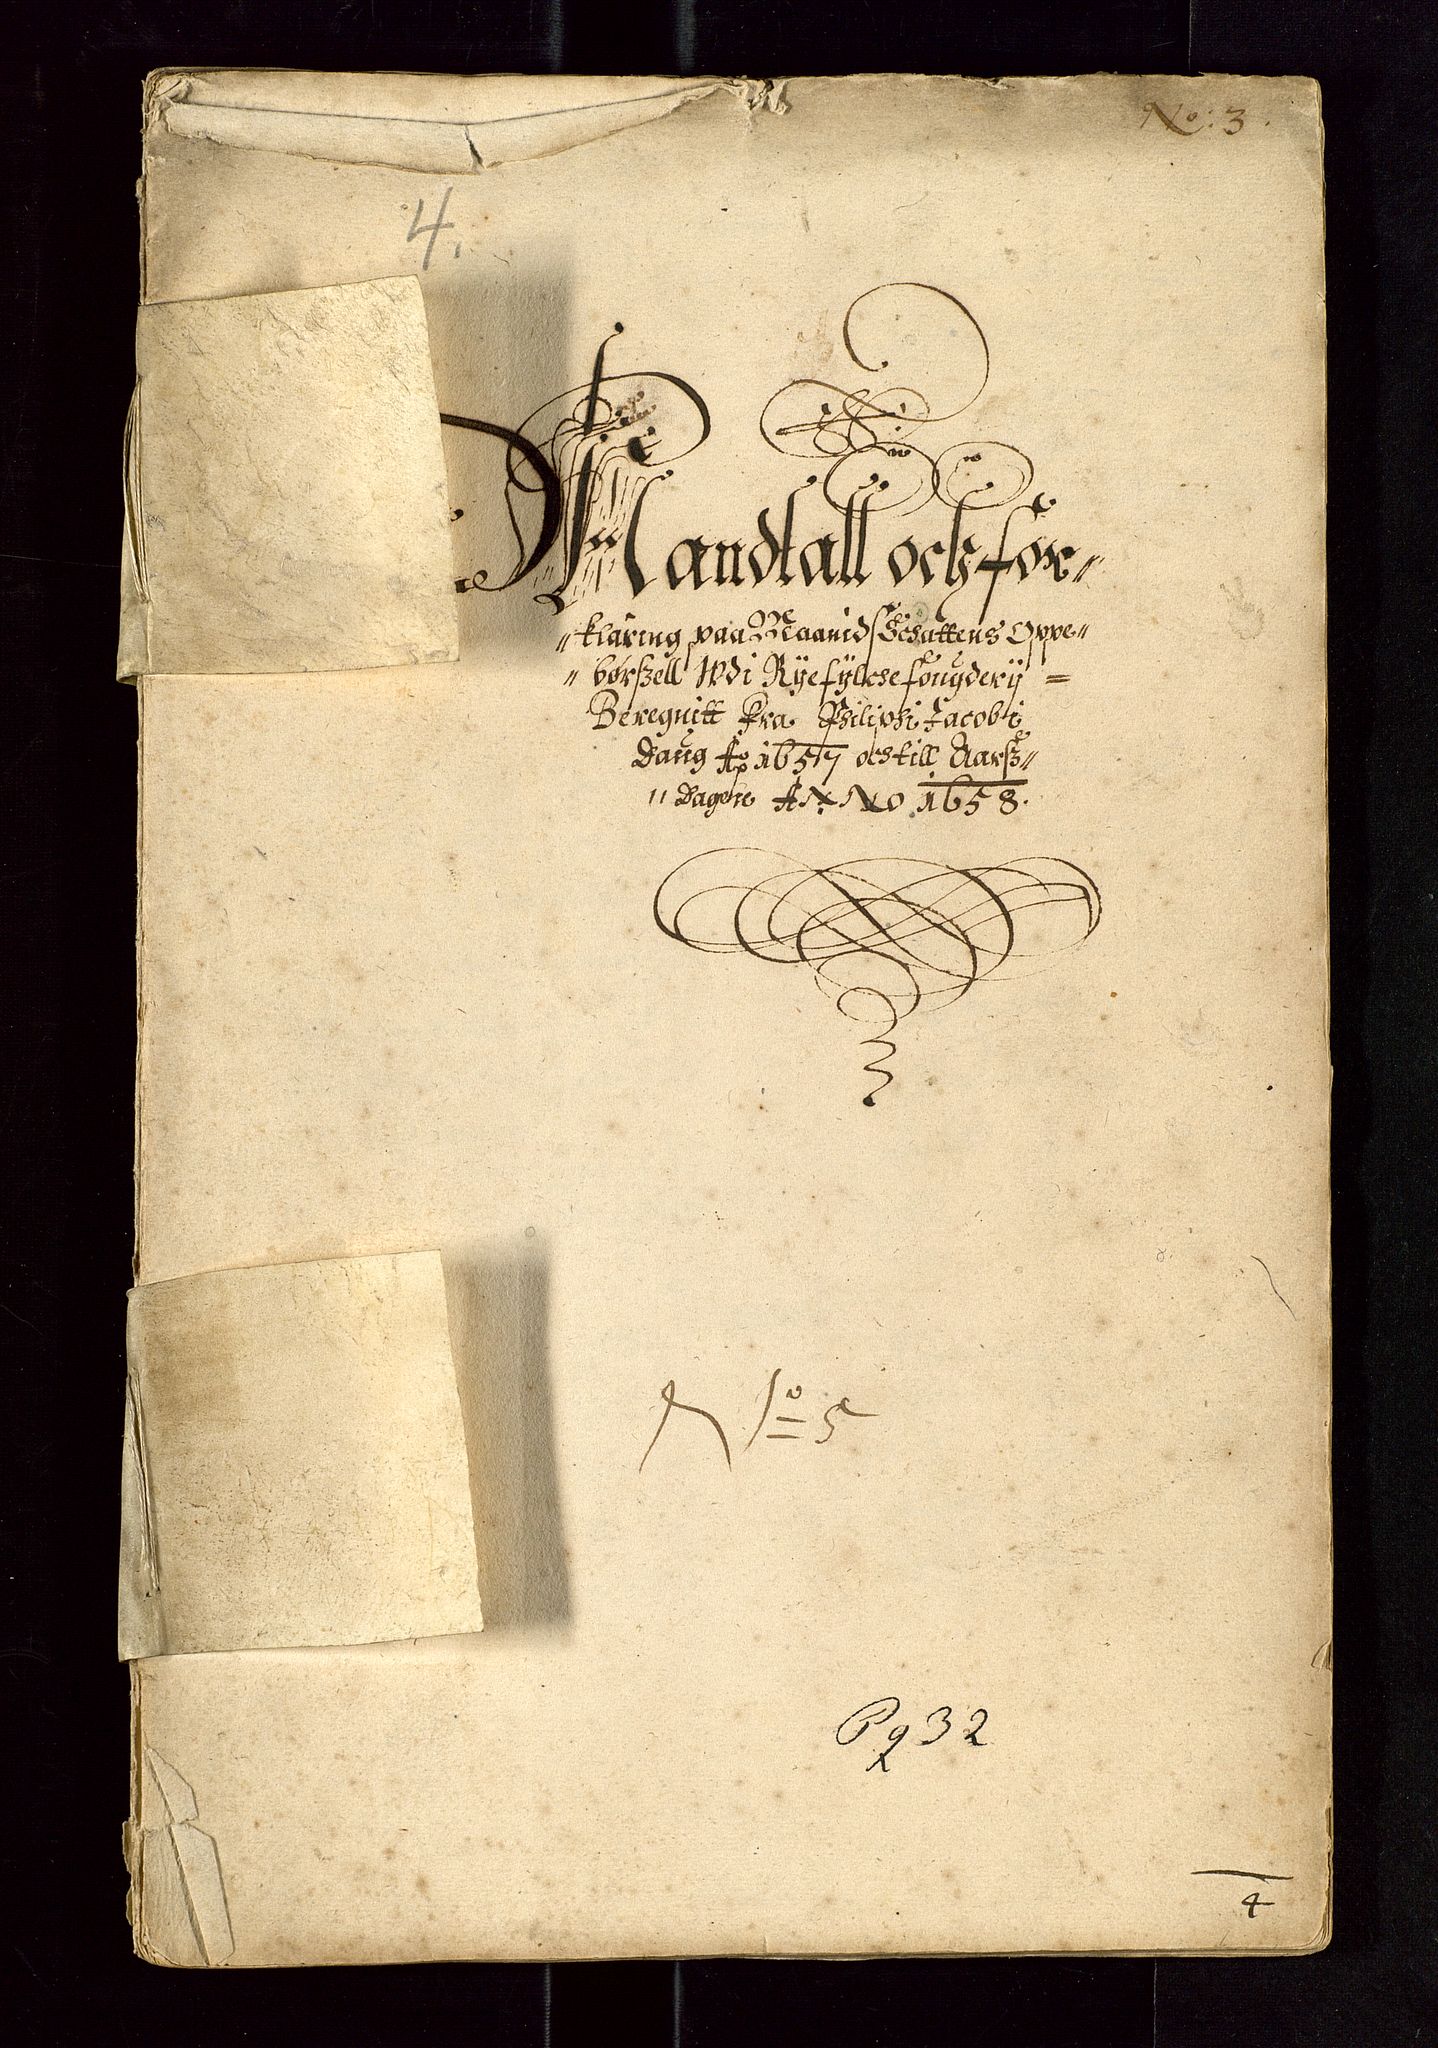 No: 3.
4.
Mandtall och for„
„klaring paa Maanids Schattens Oppe„
„børßell Udi Ryefylche fougderij =
Beregnitt fra Philiphi Jacobi
daug Ao 1657 och till Aarß„
„dagen ANNO 1658.
No 5
Pg 32
4